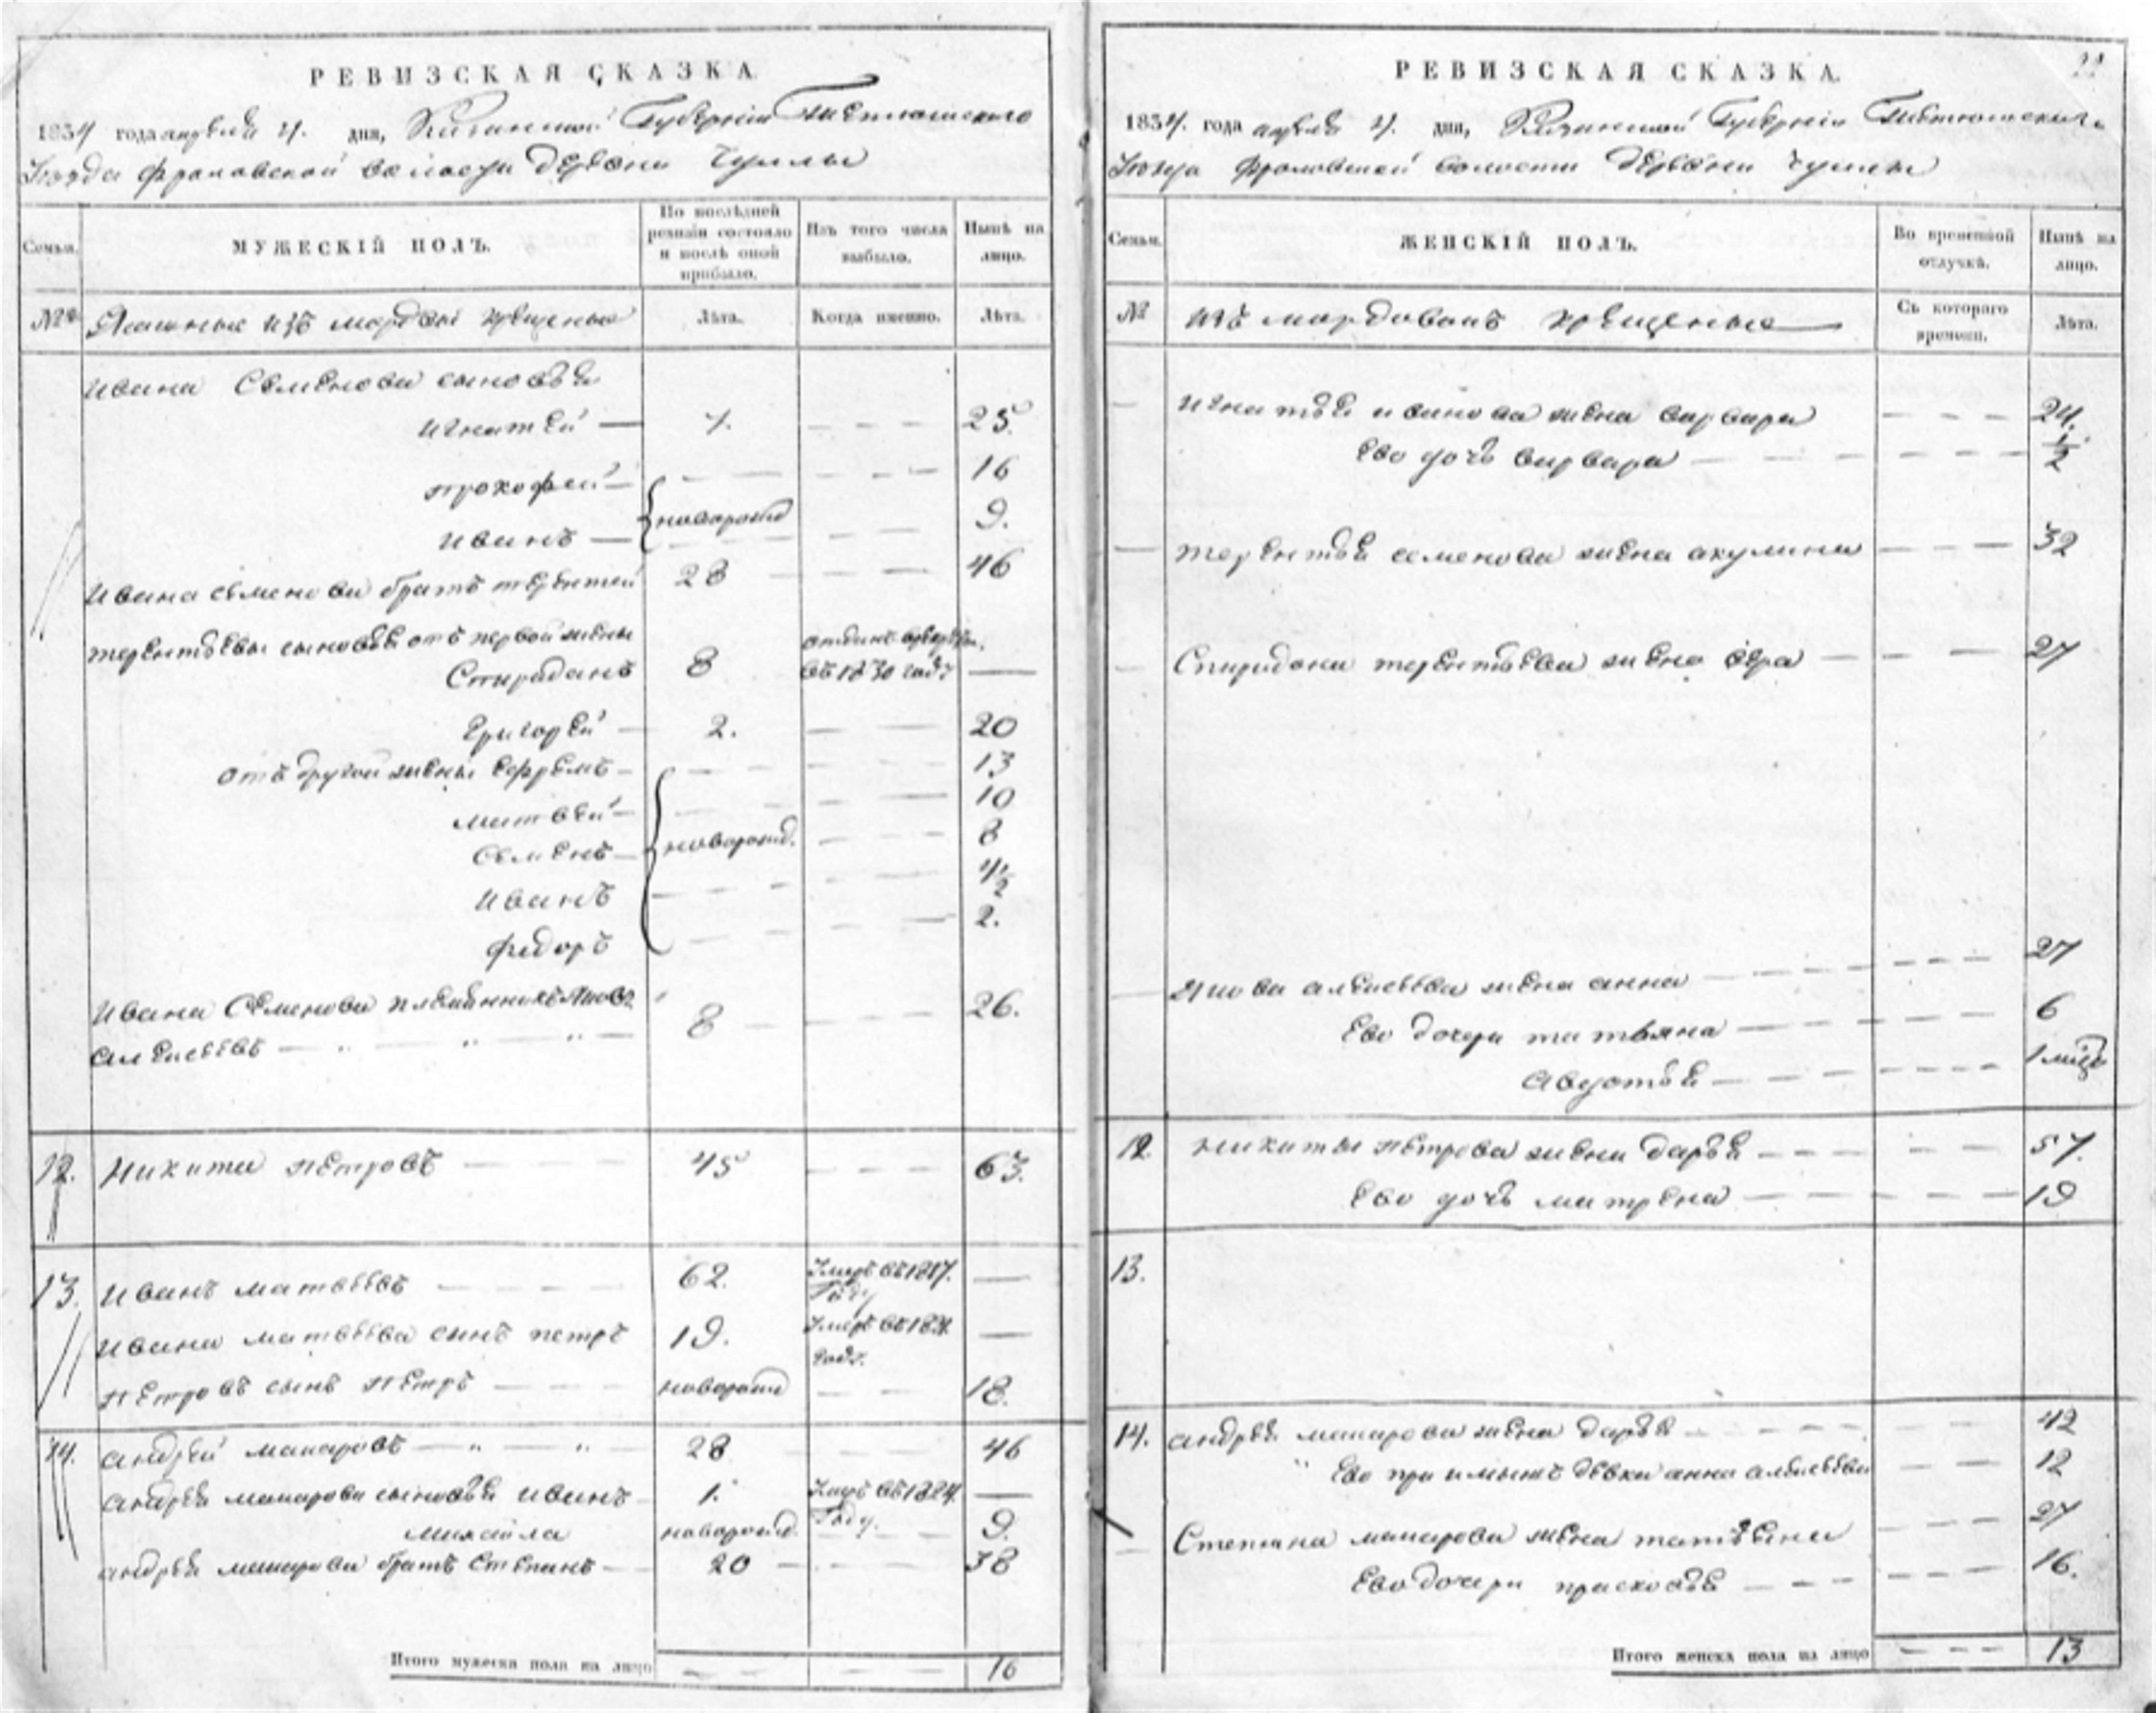 РЕВИЗСКАЯ СКАЗКА
1834 года апреля 4. дня, Казанской Губернiи Тетюшского
Уезда Фроловской волости деревни Чуллы
Семьи.
МУЖЕСКIЙ ПОЛЪ.
По послѣдней ревизiи состояло и послѣ оной прибыло.
Изъ того числа выбыло.
Нынѣ на лицо.
№
Ясашные изъ мордвы крещеные
Лѣта.
Когда именно.
Лѣта.
Ивана Семенова сыновья
Игнатей — 7. — — — 25.
прокофей — — — — 16
новорожд
Иванъ — — — 9.
Ивана семенова братъ терентей 28 — — — 46
терентьевы сыновья отъ первой жены
Спиридонъ 8 отданъ въ рекруты въ 1830 году —
Григорей — 2. — — 20
отъ другой жены Ефремъ — — — 13
матвей — — — 10
Семенъ — новорожд. — — 8
Иванъ — — — 4½
Федоръ — — — 2.
Ивана Семенова племянникъ Яковъ
алексеевъ — " — " — " — 8 — — — 26.
12. Никита петровъ — — 45 — — — 63.
13. Иванъ матвеевъ — — — 62. Умеръ въ 1817. Году —
Ивана матвеева сынъ петръ 19. Умеръ въ 182 году. —
петровъ сынъ петръ — — — новорожд — — 18.
14. андрей макаровъ — " — " 28 — — 46
андрея макарова сыновья иванъ — 1. Умеръ въ 1824 Году. —
михайла новорожд. — — 9.
андрея макарова братъ степанъ — 20 — — — 38
Итого мужеска пола на лицо — — — — 16
22
РЕВИЗСКАЯ СКАЗКА.
1834. года апреля 4. дня, Казанской Губернiи Тетюшского
Уезда Фроловской волости деревни чуллы
Семьи.
ЖЕНСКIЙ ПОЛЪ.
Во временной отлучкѣ.
Нынѣ на лицо.
№
изъ мордовокъ крещеные —
Съ котораго времени.
Лѣта.
— Игнатья иванова жена варвара — — — 24.
Ево дочь варвара — — — — ½
— терентья семенова жена акулина — — — 32
— Спиридона терентьева жена вера — — — 27
— Якова алексеева жена анна — — — 27
Ево дочери татьяна — — — — 6
авдотья — — — — 1 меся
12. никиты петрова жена дарья — — — — — 57.
Ево дочь матрена — — — — 19
13.
14. андрея макарова жена дарья — — — — 42
" Ево приимышъ девка анна алексеева — — 12
— Степана макарова жена татьяна — — — 27
Ево дочери прасковья — — — — 16.
Итого женска пола на лицо — — — 13